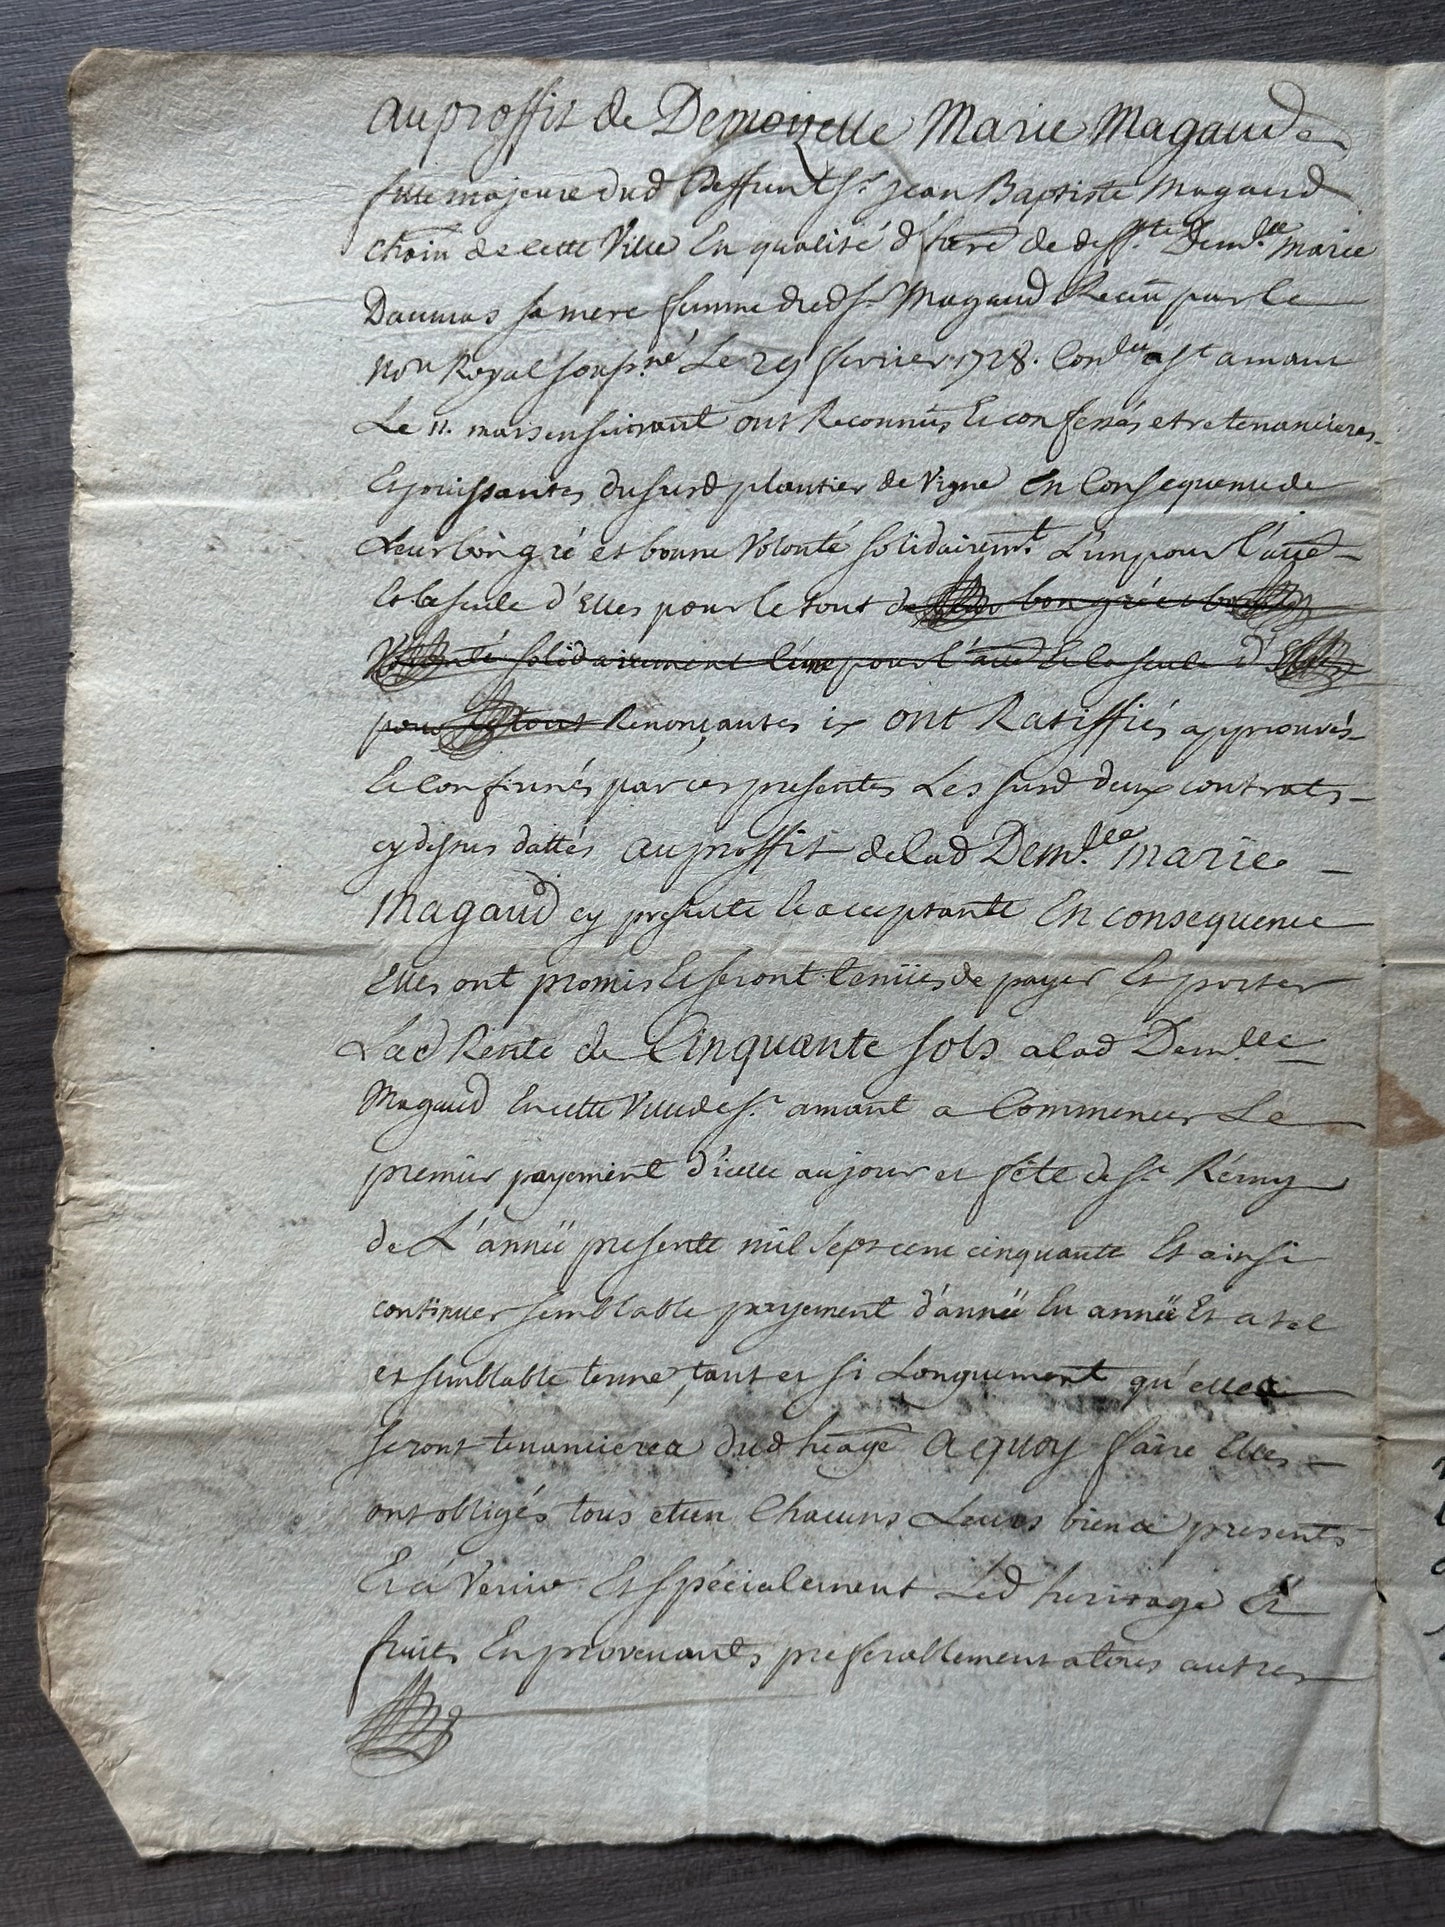 au proffit de Demoizelle Marie Magaud
fille majeure dud deffunt Sr. Jean Baptiste Magaud
de cette Ville En qualité d'here de deffte. Demlle Marie
Daumas sa mere femme dud Sr. Magaud Receu par le
Nore Royal soussné Le 29 fevrier 1728. Conlée a St amant
Le 11. mars ensuivant ont Reconnus Et confessés etre tenancieres
Et jouissantes du susd plantier de Vigne En Consequence de
Leur bon gré et bonne Volonté solidairemt. L'un pour l'autre
Et la seule d'Elles pour le tout de leurs bon gré et bonne
Volonté solidairement l'une pour l'autre Et la seule d'Elles
pour le tout Renonçantes ix ont Ratiffiés approuvés
Et Confirmés par ces presentes Les susd deux contrats
cy dessus dattés au proffit de lad Demlle. Marie
Magaud cy presente et acceptante En consequence
Elles ont promis Et seront tenües de payer Et porter
Lad Rente de Cinquante sols a lad Demlle
Magaud En cette Ville de St. amant a Commencer Le
premier payement d'icelle au jour et fête de St. Rémy
de L'année presente mil sept cent cinquante Et ainsi
continuer semblable payement d'année En année Et a tel
et semblable terme, tant et si Longuement qu'elles
seront tenancieres dud heage a quoy faire Elles
ont obligés tous et un Chacuns Leurs biens presents
Et a Venir Et spécialement Led heritage Et
fruits En provenants preferablement a tous autres